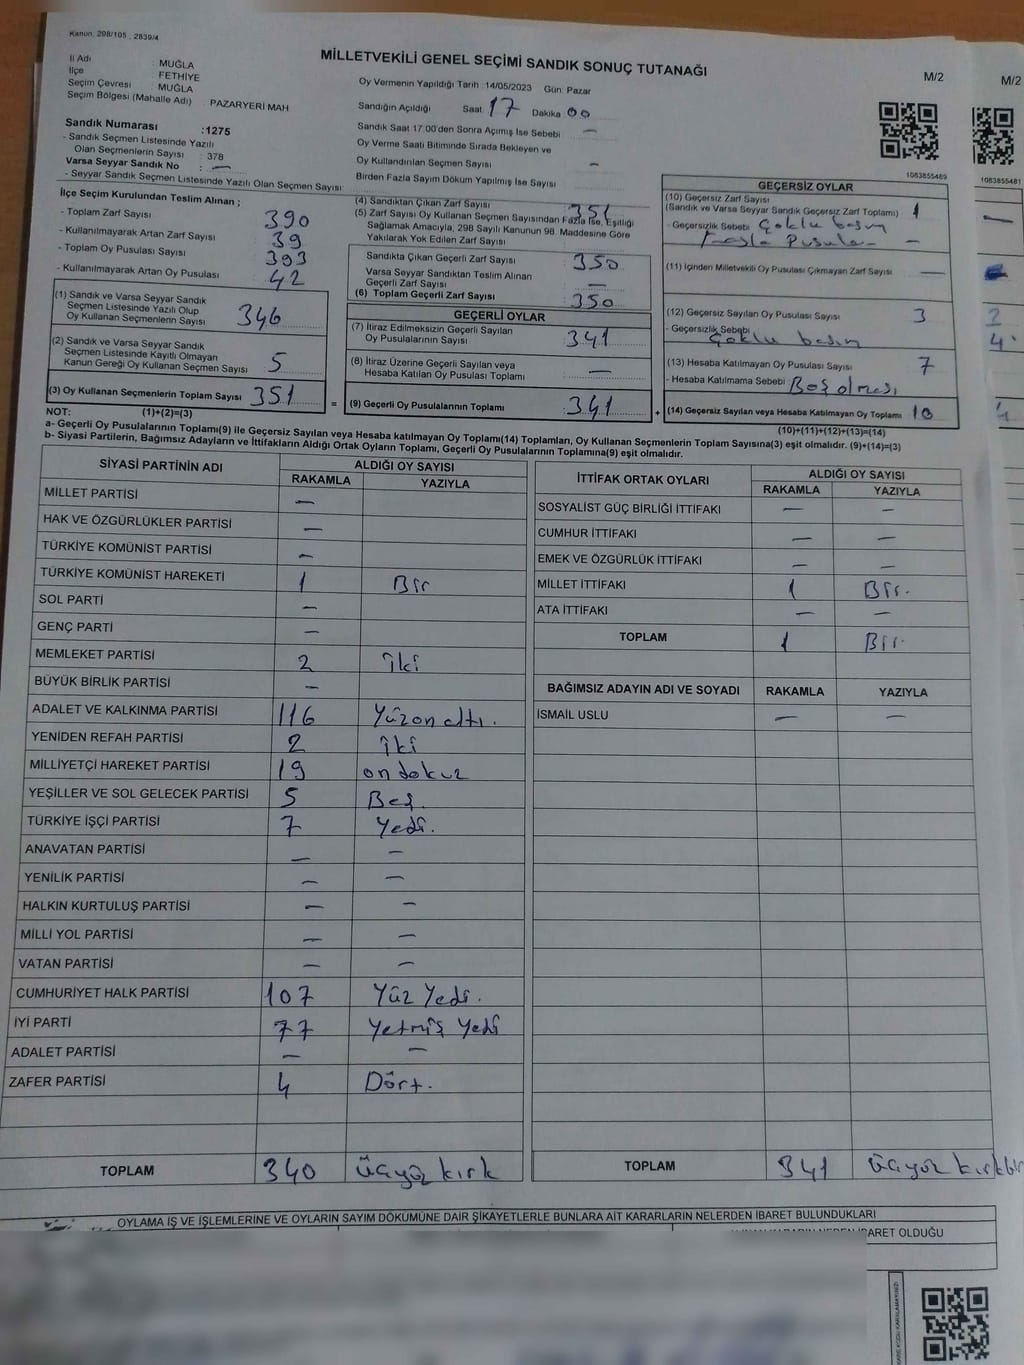 Kanun, 298/105 , 2839/4
MİLLETVEKİLİ GENEL SEÇİMİ SANDIK SONUÇ TUTANAĞI
M/2
M/2
İl Adı : MUĞLA
İlçe FETHİYE
Seçim Çevresi MUĞLA
Seçim Bölgesi (Mahalle Adı) : PAZARYERİ MAH
Sandık Numarası :1275
- Sandık Seçmen Listesinde Yazılı
Olan Seçmenlerin Sayısı : 378
Varsa Seyyar Sandık No : —
- Seyyar Sandık Seçmen Listesinde Yazılı Olan Seçmen Sayısı :
Oy Vermenin Yapıldığı Tarih :14/05/2023 Gün: Pazar
Sandığın Açıldığı Saat 17 Dakika 00
Sandık Saat 17.00'den Sonra Açımış İse Sebebi —
Oy Verme Saati Bitiminde Sırada Bekleyen ve
Oy Kullandırılan Seçmen Sayısı —
Birden Fazla Sayım Döküm Yapılmış İse Sayısı
1083855489
1083855481
İlçe Seçim Kurulundan Teslim Alınan ;
- Toplam Zarf Sayısı 390
- Kullanılmayarak Artan Zarf Sayısı : 39
- Toplam Oy Pusulası Sayısı 393
- Kullanılmayarak Artan Oy Pusulası : 42
(1) Sandık ve Varsa Seyyar Sandık
Seçmen Listesinde Yazılı Olup
Oy Kullanan Seçmenlerin Sayısı 346
(2) Sandık ve Varsa Seyyar Sandık
Seçmen Listesinde Kayıtlı Olmayan
Kanun Gereği Oy Kullanan Seçmen Sayısı : 5
(3) Oy Kullanan Seçmenlerin Toplam Sayısı : 351
(4) Sandıktan Çıkan Zarf Sayısı : 351
(5) Zarf Sayısı Oy Kullanan Seçmen Sayısından Fazla İse, Eşitliği
Sağlamak Amacıyla, 298 Sayılı Kanunun 98. Maddesine Göre
Yakılarak Yok Edilen Zarf Sayısı :
Sandıkta Çıkan Geçerli Zarf Sayısı : 350
Varsa Seyyar Sandıktan Teslim Alınan
Geçerli Zarf Sayısı : —
(6) Toplam Geçerli Zarf Sayısı : 350
GEÇERLİ OYLAR
(7) İtiraz Edilmeksizin Geçerli Sayılan
Oy Pusulalarının Sayısı : 341
(8) İtiraz Üzerine Geçerli Sayılan veya
Hesaba Katılan Oy Pusulası Toplamı : —
= (9) Geçerli Oy Pusulalarının Toplamı : 341
GEÇERSİZ OYLAR
(10) Geçersiz Zarf Sayısı
(Sandık ve Varsa Seyyar Sandık Geçersiz Zarf Toplamı) : 1
- Geçersizlik Sebebi : Çoklu basım
Fazla Pusula —
(11) İçinden Milletvekili Oy Pusulası Çıkmayan Zarf Sayısı : —
(12) Geçersiz Sayılan Oy Pusulası Sayısı 3
- Geçersizlik Sebebi
Çoklu basım
(13) Hesaba Katılmayan Oy Pusulası Sayısı : 7
- Hesaba Katılmama Sebebi : Boş olması
+ (14) Geçersiz Sayılan veya Hesaba Katılmayan Oy Toplamı : 10
NOT: (1)+(2)=(3)
(10)+(11)+(12)+(13)=(14)
a- Geçerli Oy Pusulalarının Toplamı(9) ile Geçersiz Sayılan veya Hesaba katılmayan Oy Toplamı(14) Toplamları, Oy Kullanan Seçmenlerin Toplam Sayısına(3) eşit olmalıdır. (9)+(14)=(3)
b- Siyasi Partilerin, Bağımsız Adayların ve İttifakların Aldığı Ortak Oyların Toplamı, Geçerli Oy Pusulalarının Toplamına(9) eşit olmalıdır.
SİYASİ PARTİNİN ADI ALDIĞI OY SAYISI
RAKAMLA YAZIYLA
MİLLET PARTİSİ —
HAK VE ÖZGÜRLÜKLER PARTİSİ —
TÜRKİYE KOMÜNİST PARTİSİ —
TÜRKİYE KOMÜNİST HAREKETİ 1 Bir
SOL PARTİ —
GENÇ PARTİ —
MEMLEKET PARTİSİ 2 iki
BÜYÜK BİRLİK PARTİSİ —
ADALET VE KALKINMA PARTİSİ 116 Yüzon altı.
YENİDEN REFAH PARTİSİ 2 iki
MİLLİYETÇİ HAREKET PARTİSİ 19 on dokuz
YEŞİLLER VE SOL GELECEK PARTİSİ 5 Beş.
TÜRKİYE İŞÇİ PARTİSİ 7 Yedi.
ANAVATAN PARTİSİ — —
YENİLİK PARTİSİ — —
HALKIN KURTULUŞ PARTİSİ — —
MİLLİ YOL PARTİSİ — —
VATAN PARTİSİ — —
CUMHURİYET HALK PARTİSİ 107 Yüz Yedi.
İYİ PARTİ 77 Yetmiş Yedi
ADALET PARTİSİ — —
ZAFER PARTİSİ 4 Dört.
TOPLAM 340 üçyüz kırk
İTTİFAK ORTAK OYLARI ALDIĞI OY SAYISI
RAKAMLA YAZIYLA
SOSYALİST GÜÇ BİRLİĞİ İTTİFAKI — —
CUMHUR İTTİFAKI — —
EMEK VE ÖZGÜRLÜK İTTİFAKI — —
MİLLET İTTİFAKI 1 Bir.
ATA İTTİFAKI — —
TOPLAM 1 Bir.
BAĞIMSIZ ADAYIN ADI VE SOYADI RAKAMLA YAZIYLA
İSMAİL USLU — —
TOPLAM 341 üçyüz kırkbir
OYLAMA İŞ VE İŞLEMLERİNE VE OYLARIN SAYIM DÖKÜMÜNE DAİR ŞİKAYETLERLE BUNLARA AİT KARARLARIN NELERDEN İBARET BULUNDUKLARI
İBARET OLDUĞU